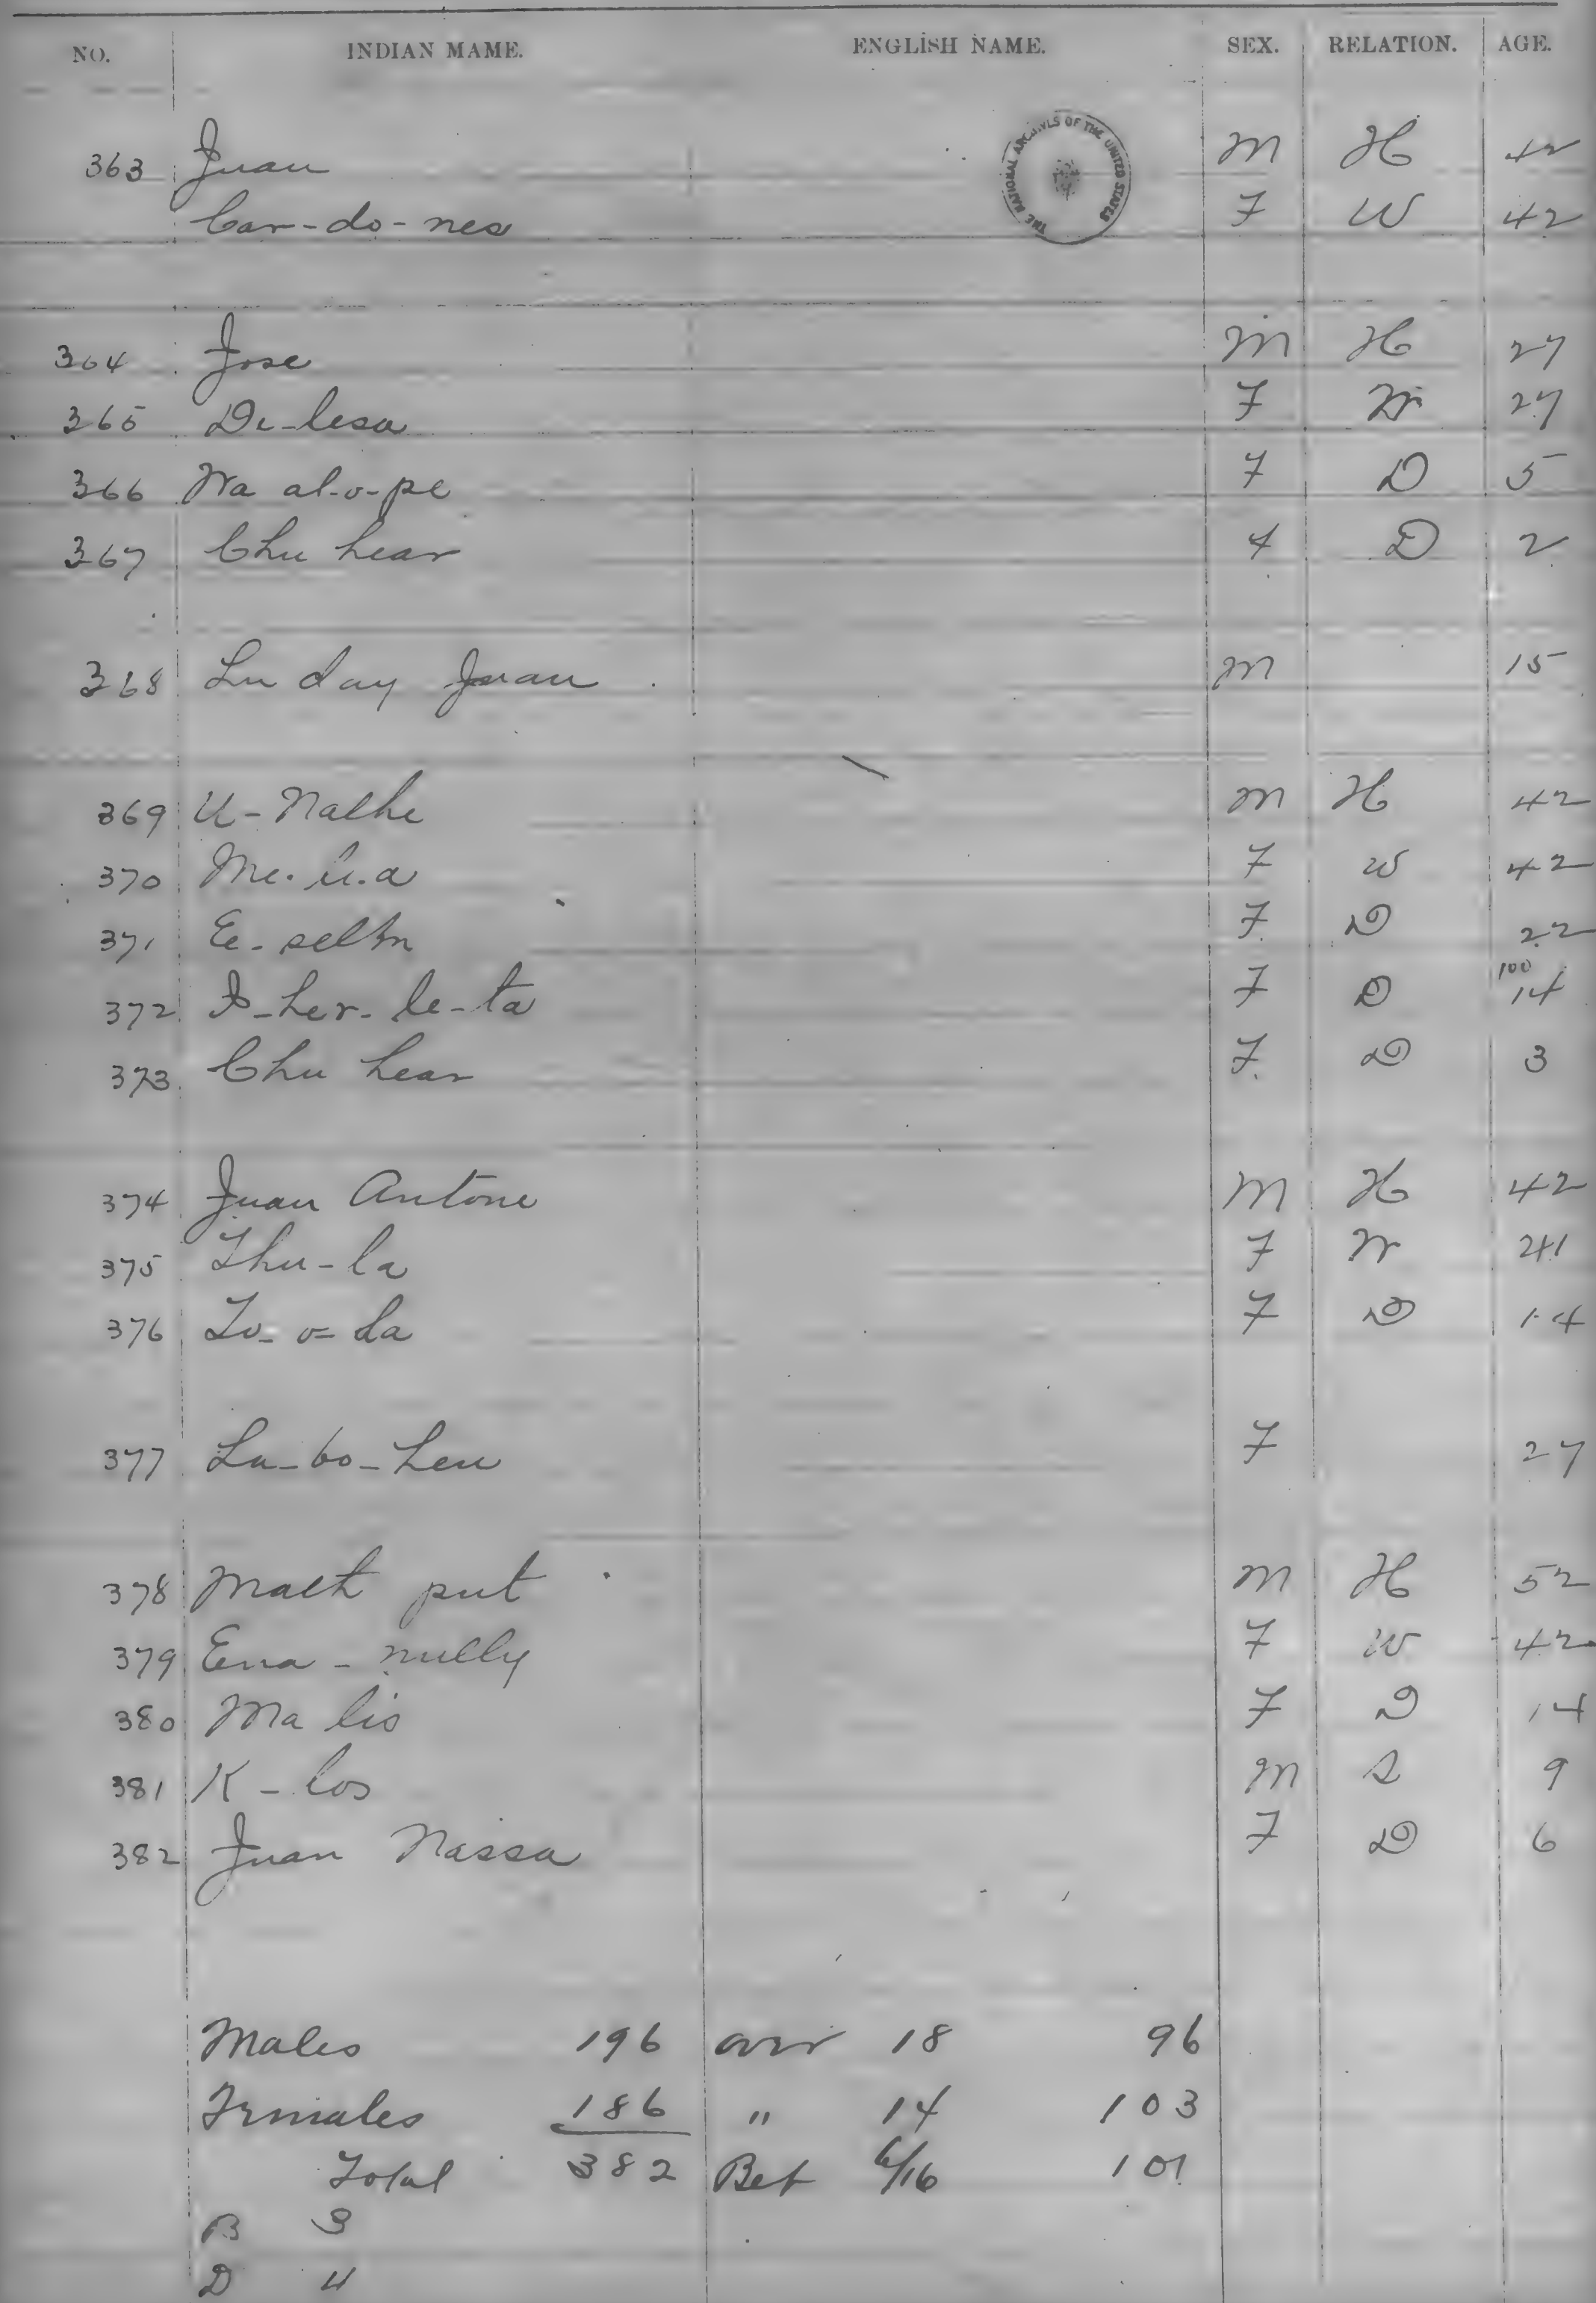 NO. INDIAN MAME. ENGLISH NAME. SEX. RELATION. AGE.
THE NATIONAL ARCHIVES OF THE UNITED STATES
363 Juan M H 42
Car-do-nes F W 42
364 Jose M H 27
365 De-lesa F W 27
366 Wa al-o-pe F D 5
367 Chu hear F D 2
368 Lu day Juan M 15
369 U-Nalhe M H 42
370 Me. li.a F W 42
371 F D 22
100
372 F D 14
373 Chu hear F. D 3
374 Juan Antone M H 42
375 Thu-la F W 41
376 F D 14
377 La-bo-heu F 27
378 Malt put M H 52
379 Ena - nully F W 42
380 Ma lis F D 14
381 K - los M S 9
382 Juan Nassa F D 6
Males 196 over 18 96
Females 186 " 14 103
Total 382 Bet 6/16 101
B 3
D 4